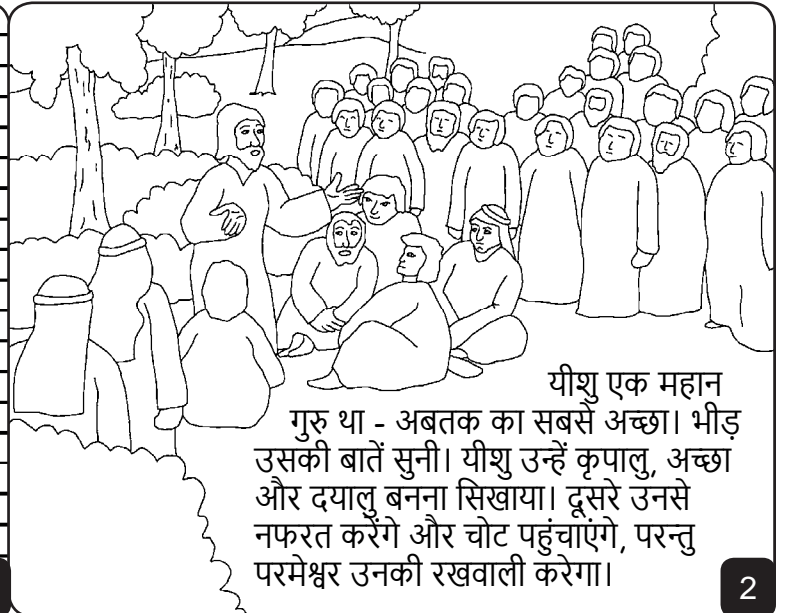 यीशु एक महान
गुरु था - अबतक का सबसे अच्छा। भीड़
उसकी बातें सुनी। यीशु उन्हें कृपालु, अच्छा
और दयालु बनना सिखाया। दूसरे उनसे
नफरत करेंगे और चोट पहुंचाएंगे, परन्तु
परमेश्वर उनकी रखवाली करेगा।
2